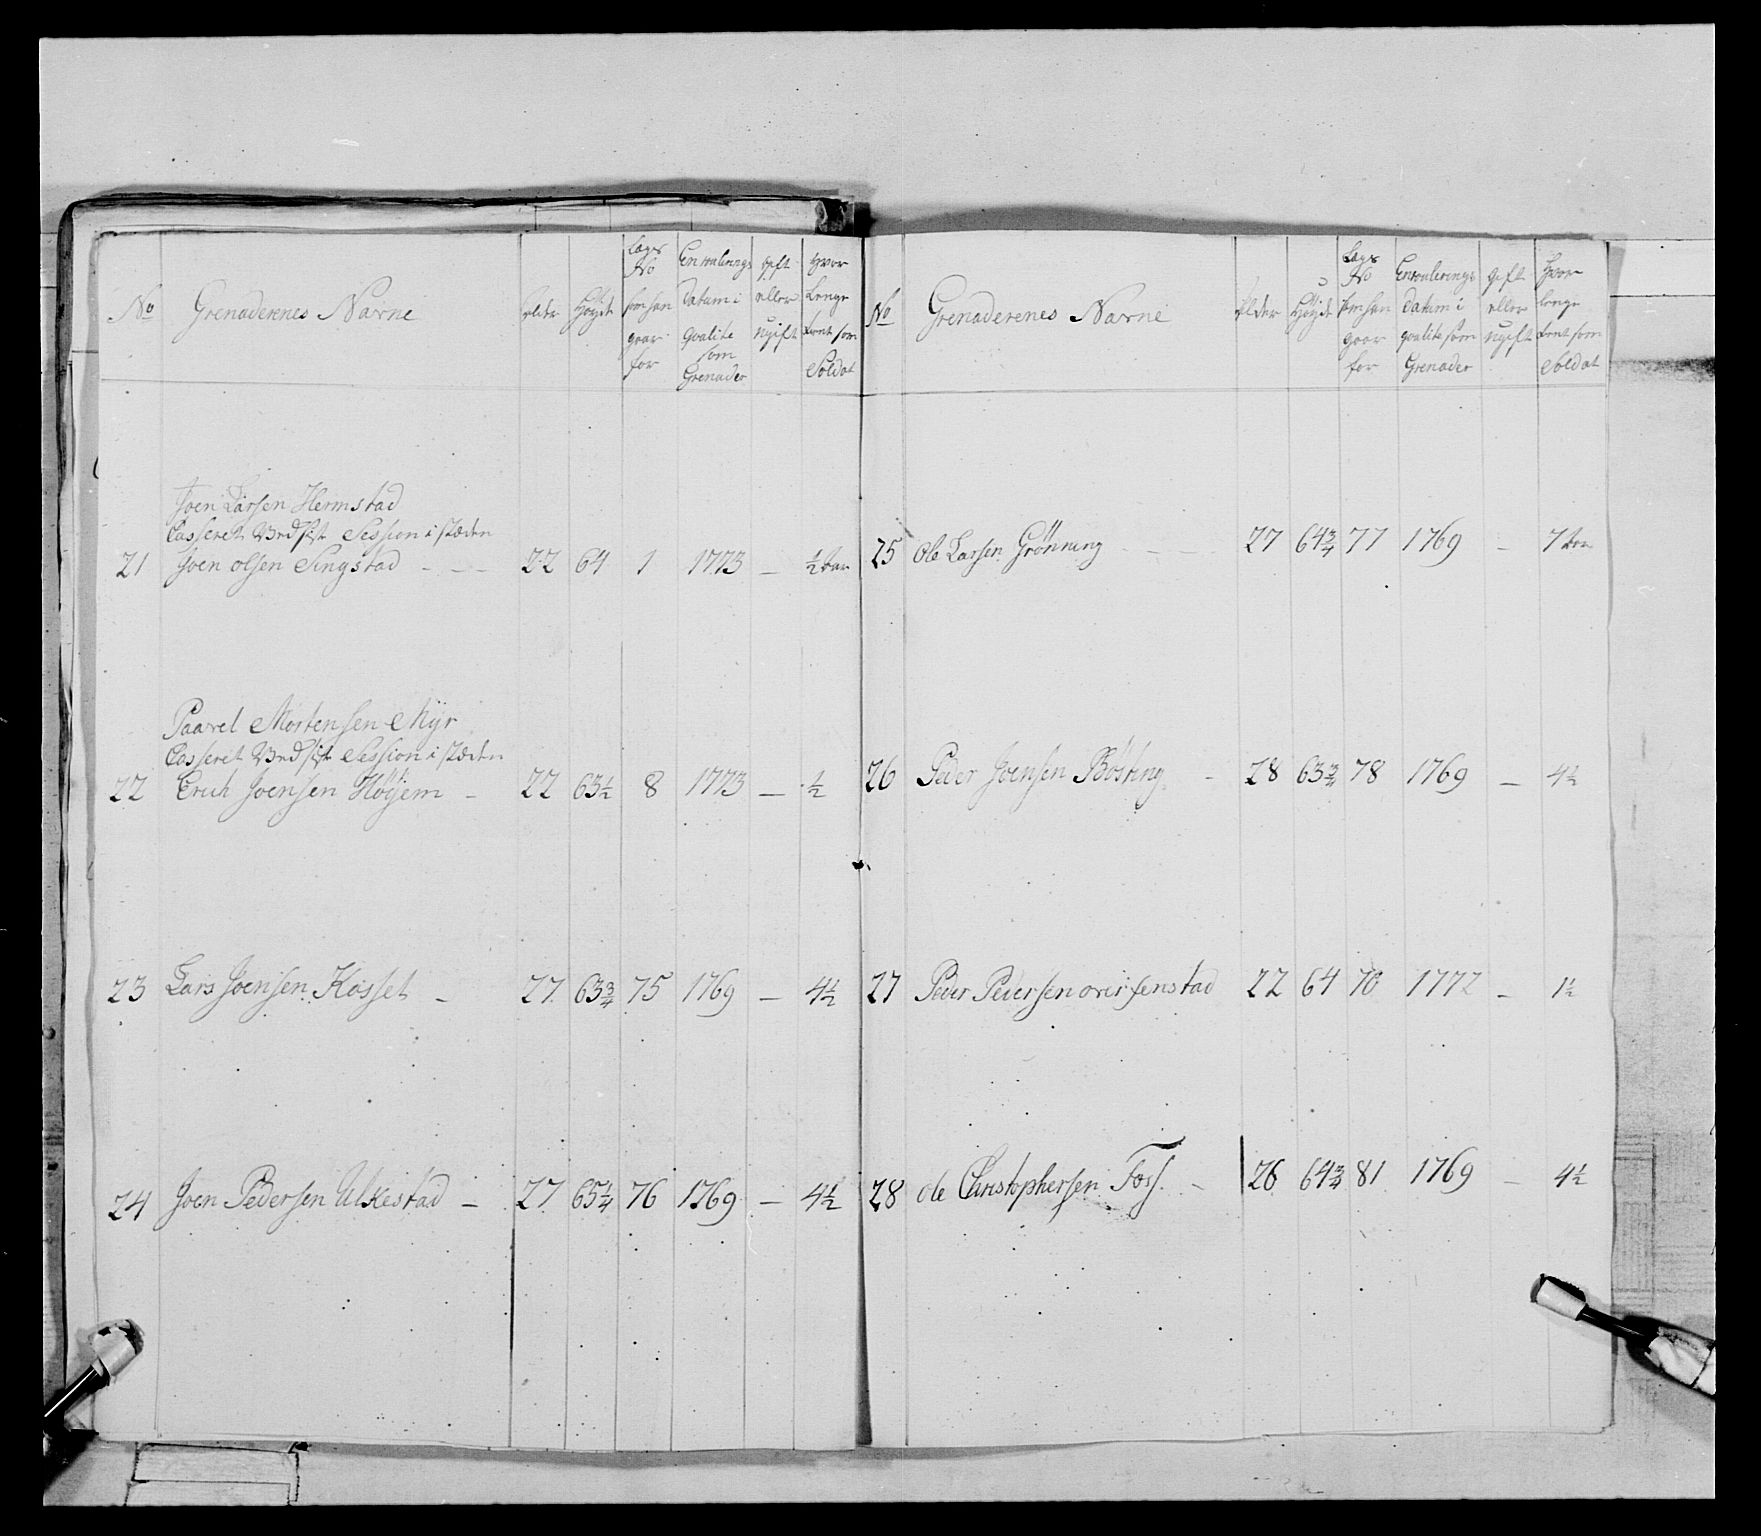 No Grenaderenes Navne Alder Høyde Lægs No som han gaar for Enroulerings Datum i qvalite som Grenader Gift eller ugift Hvor lenge tient som Soldat
Joen Larsen Hermstad
Casseret Ved sist Session i stæden
21 Joen Olsen Singstad - - - 22 64 1 1773 - ½ Aar
Paavel Mortensen Myr
Casseret Ved sist Session i stæden
22 Erich Joensen Höÿem - 22 63½ 8 1773 - ½
23 Lars Joensen Kosset - 27 63¾ 75 1769 - 4½
24 Joen Pedersen Ulkestad - 27 65¼ 76 1769 - 4½
No Grenaderenes Navne Alder Høyde Lægs No som han gaar for Enroulerings Datum i qvalite som Grenader Gift eller ugift Hvor lenge tient som Soldat
25 Ole Larsen Grönning - - - 27 64¾ 77 1769 - 7 Aar
26 Peder Joensen Bösting - 28 63¾ 78 1769 - 4½
27 Peder Pedersen 22 64 70 1772 - 1½
28 Ole Christophersen Foss - 26 64¾ 81 1769 - 4½